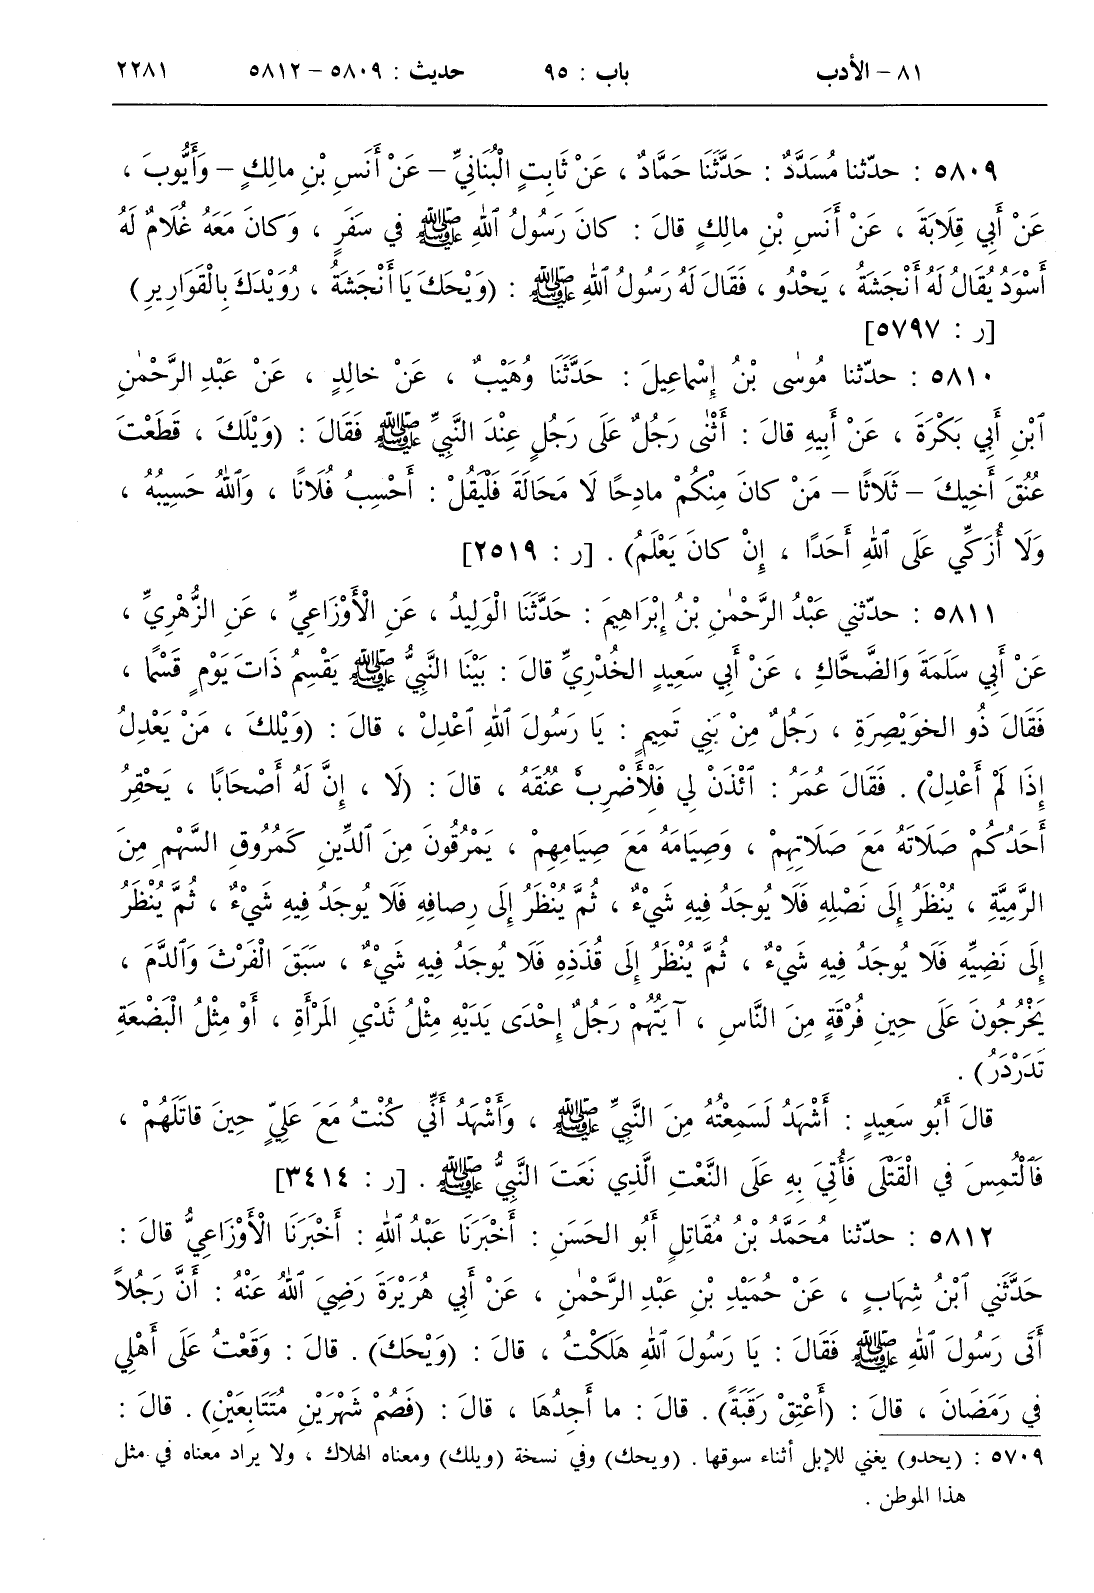 ٨١ – الأدب باب : ٩٥ حديث : ٥٨٠٩ – ٥٨١٢ ٢٢٨١
٥٨٠٩ : حدّثنا مُسَدَّدٌ : حَدَّثَنَا حَمَّادٌ ، عَنْ ثَابِتٍ الْبُنَانِيِّ – عَنْ أَنَسِ بْنِ مالِكٍ – وَأَيُّوبَ ،
عَنْ أَبِي قِلَابَةَ ، عَنْ أَنَسِ بْنِ مالِكٍ قالَ : كانَ رَسُولُ ٱللهِ ﷺ في سَفَرٍ ، وَكانَ مَعَهُ غُلَامٌ لَهُ
أَسْوَدُ يُقَالُ لَهُ أَنْجَشَةُ ، يَحْدُو ، فَقَالَ لَهُ رَسُولُ ٱللهِ ﷺ : (وَيْحَكَ يَا أَنْجَشَةُ ، رُوَيْدَكَ بِالْقَوَارِيرِ)
[ر : ٥٧٩٧]
٥٨١٠ : حدّثنا مُوسٰى بْنُ إِسْماعِيلَ : حَدَّثَنَا وُهَيْبٌ ، عَنْ خالِدٍ ، عَنْ عَبْدِ الرَّحْمٰنِ
ٱبْنِ أَبِي بَكْرَةَ ، عَنْ أَبِيهِ قالَ : أَثْنٰى رَجُلٌ عَلَى رَجُلٍ عِنْدَ النَّبِيِّ ﷺ فَقَالَ : (وَيْلَكَ ، قَطَعْتَ
عُنُقَ أَخِيكَ – ثَلَاثًا – مَنْ كانَ مِنْكُمْ مادِحًا لَا مَحَالَةَ فَلْيَقُلْ : أَحْسِبُ فُلَانًا ، وَٱللهُ حَسِيبُهُ ،
وَلَا أُزَكِّي عَلَى ٱللهِ أَحَدًا ، إِنْ كانَ يَعْلَمُ) . [ر : ٢٥١٩]
٥٨١١ : حدّثني عَبْدُ الرَّحْمٰنِ بْنُ إِبْرَاهِيمَ : حَدَّثَنَا الْوَلِيدُ ، عَنِ الْأَوْزَاعِيِّ ، عَنِ الزُّهْرِيِّ ،
عَنْ أَبِي سَلَمَةَ وَالضَّحَّاكِ ، عَنْ أَبِي سَعِيدٍ الخُدْرِيِّ قالَ : بَيْنَا النَّبِيُّ ﷺ يَقْسِمُ ذَاتَ يَوْمٍ قَسْمًا ،
فَقَالَ ذُو الخوَيْصِرَةِ ، رَجُلٌ مِنْ بَنِي تَمِيمٍ : يَا رَسُولَ ٱللهِ ٱعْدِلْ ، قالَ : (وَيْلَكَ ، مَنْ يَعْدِلُ
إِذَا لَمْ أَعْدِلْ) . فَقَالَ عُمَرُ : ٱئْذَنْ لِي فَلْأَضْرِبْ عُنُقَهُ ، قالَ : (لَا ، إِنَّ لَهُ أَصْحَابًا ، يَحْقِرُ
أَحَدُكُمْ صَلَاتَهُ مَعَ صَلَاتِهِمْ ، وَصِيَامَهُ مَعَ صِيَامِهِمْ ، يَمْرُقُونَ مِنَ ٱلدِّينِ كَمُرُوقِ السَّهْمِ مِنَ
الرَّمِيَّةِ ، يُنْظَرُ إِلَى نَصْلِهِ فَلَا يُوجَدُ فِيهِ شَيْءٌ ، ثُمَّ يُنْظَرُ إِلَى رِصافِهِ فَلَا يُوجَدُ فِيهِ شَيْءٌ ، ثُمَّ يُنْظَرُ
إِلَى نَضِيِّهِ فَلَا يُوجَدُ فِيهِ شَيْءٌ ، ثُمَّ يُنْظَرُ إِلَى قُذَذِهِ فَلَا يُوجَدُ فِيهِ شَيْءٌ ، سَبَقَ الْفَرْثَ وَٱلدَّمَ ،
يَخْرُجُونَ عَلَى حِينِ فُرْقَةٍ مِنَ النَّاسِ ، آيَتُهُمْ رَجُلٌ إِحْدَى يَدَيْهِ مِثْلُ ثَدْيِ المَرْأَةِ ، أَوْ مِثْلُ الْبَضْعَةِ
تَدَرْدَرُ) .
قالَ أَبُو سَعِيدٍ : أَشْهَدُ لَسَمِعْتُهُ مِنَ النَّبِيِّ ﷺ ، وَأَشْهَدُ أَنِّي كُنْتُ مَعَ عَلِيٍّ حِينَ قاتَلَهُمْ ،
فَٱلْتُمِسَ في الْقَتْلَى فَأُتِيَ بِهِ عَلَى النَّعْتِ الَّذِي نَعَتَ النَّبِيُّ ﷺ . [ر : ٣٤١٤]
٥٨١٢ : حدّثنا مُحَمَّدُ بْنُ مُقَاتِلٍ أَبُو الحَسَنِ : أَخْبَرَنَا عَبْدُ ٱللهِ : أَخْبَرَنَا الْأَوْزَاعِيُّ قالَ :
حَدَّثَنِي ٱبْنُ شِهَابٍ ، عَنْ حُمَيْدِ بْنِ عَبْدِ الرَّحْمٰنِ ، عَنْ أَبِي هُرَيْرَةَ رَضِيَ ٱللهُ عَنْهُ : أَنَّ رَجُلاً
أَتَى رَسُولَ ٱللهِ ﷺ فَقَالَ : يَا رَسُولَ ٱللهِ هَلَكْتُ ، قالَ : (وَيْحَكَ) . قالَ : وَقَعْتُ عَلَى أَهْلِي
فِي رَمَضَانَ ، قالَ : (أَعْتِقْ رَقَبَةً) . قالَ : ما أَجِدُهَا ، قالَ : (فَصُمْ شَهْرَيْنِ مُتَتَابِعَيْنِ) . قالَ :
٥٧٠٩ : (يحدو) يغني للإبل أثناء سوقها . (ويحك) وفي نسخة (ويلك) ومعناه الهلاك ، ولا يراد معناه في مثل
هذا الموطن .